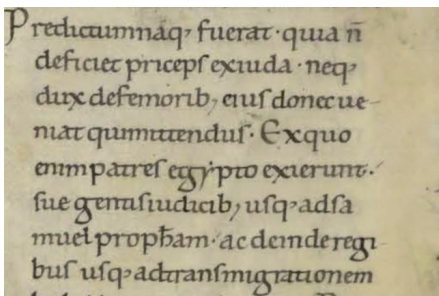 Predictumnaq; fuerat · quia n̄
deficiet pricepſ exiuda · neq;
dux defemorib; eiuſ donec ue
niat qui mittenduſ · Exquo
enim patreſ egẏpto exierunt ·
ſue gentiſ iudicib; uſq; adſa
muel propħam · ac deinde regi
buſ uſq; adtranſmigrationem